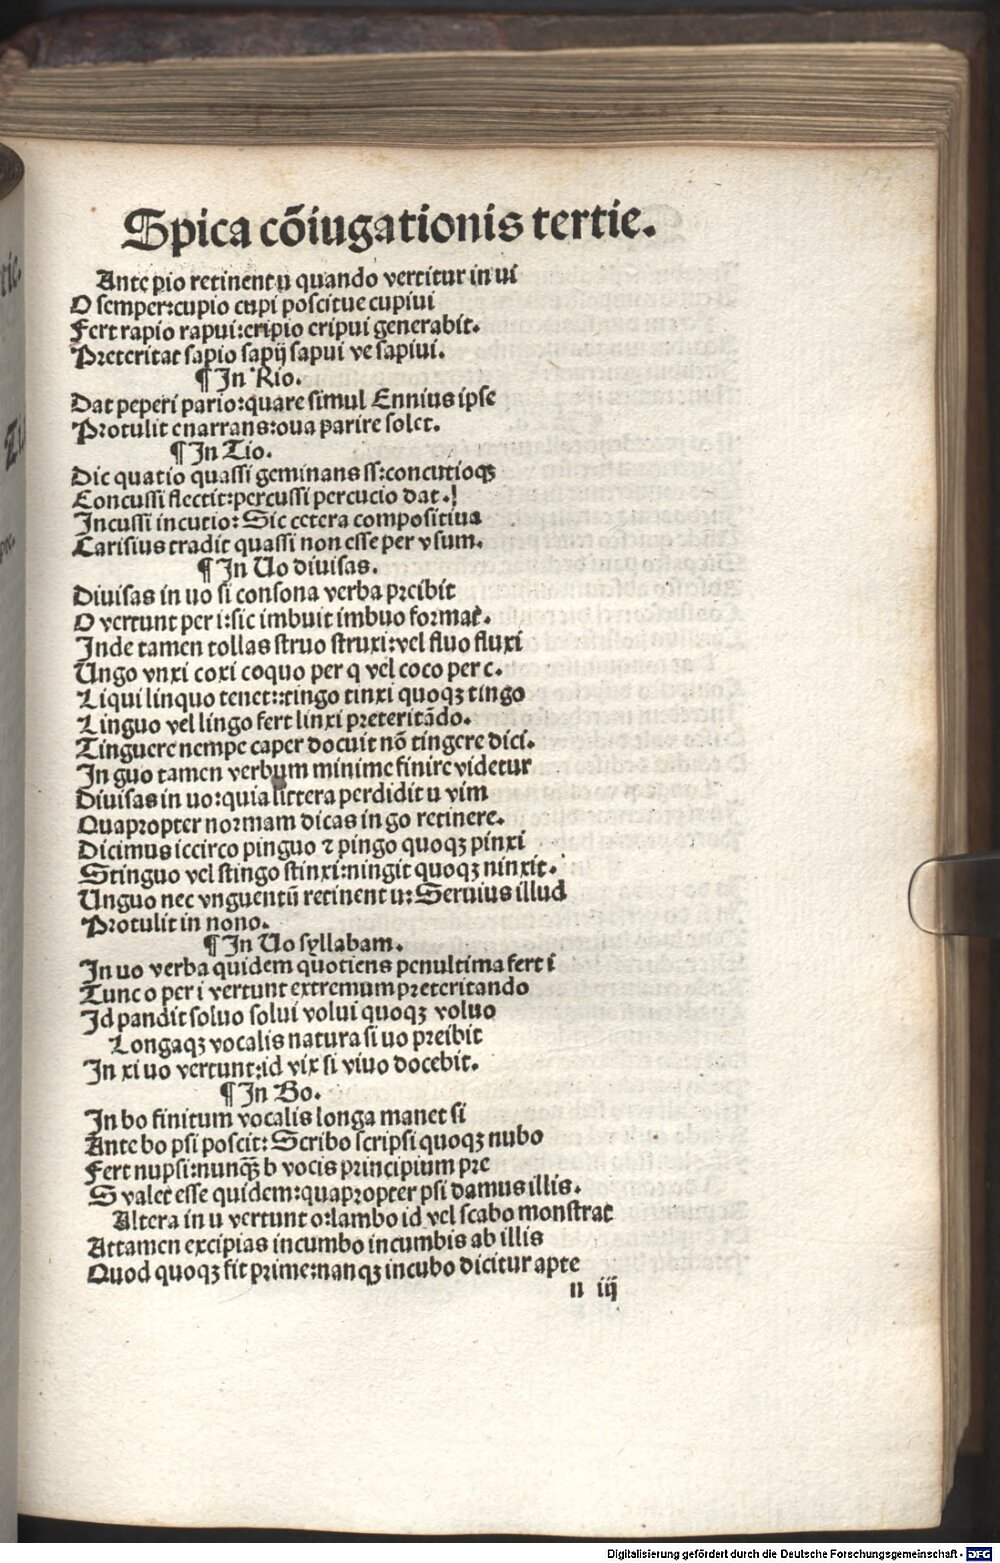 Spica cõiugationis tertie.
Ante pio retinent u quando vertitur in ui
O semper:cupio cupi poscitue cupiui
Fert rapio rapui:eripio eripui generabit.
Preteritat sapio sapij sapui ve sapiui.
¶ In Rio.
Dat peperi pario:quare simul Ennius ipse
Protulit enarrans:oua parire solet.
¶ In Tio.
Dic quatio quassi geminans ss:concutioqꝫ
Concussi flectit:percussi percucio dat.!
Incussi incutio: Sic cetera compositiua
Carisius tradit quassi non esse per vsum.
¶ In Uo diuisas.
Diuisas in uo si consona verba preibit
O vertunt per i:sic imbuit imbuo format.
Inde tamen tollas struo struxi:vel fluo fluxi
Ungo vnxi coxi coquo per q vel coco per c.
Liqui linquo tenet::tingo tinxi quoqꝫ tingo
Linguo vel lingo fert linxi preteritãdo.
Tinguere nempe caper docuit nõ tingere dici.
In guo tamen verbum minime finire videtur
Diuisas in uo:quia littera perdidit u vim
Quapropter normam dicas in go retinere.
Dicimus iccirco pinguo ⁊ pingo quoqꝫ pinxi
Stinguo vel stingo stinxi:ningit quoqꝫ ninxit.
Unguo nec vnguentũ retinent u: Seruius illud
Protulit in nono.
¶ In Uo syllabam.
In uo verba quidem quotiens penultima fert i
Tunc o per i vertunt extremum preteritando
Id pandit soluo solui volui quoqꝫ voluo
Longaqꝫ vocalis natura si uo preibit
In xi uo vertunt:id vix si viuo docebit.
¶ In Bo.
In bo finitum vocalis longa manet si
Ante bo psi poscit: Scribo scripsi quoqꝫ nubo
Fert nupsi:nunqꝫ̃ b vocis principium pre
S valet esse quidem:quapropter psi damus illis.
Altera in u vertunt o:lambo id vel scabo monstrat
Attamen excipias incumbo incumbis ab illis
Quod quoqꝫ fit prime:nanqꝫ incubo dicitur apte
n iij
Digitalisierung gefördert durch die Deutsche Forschungsgemeinschaft - DFG